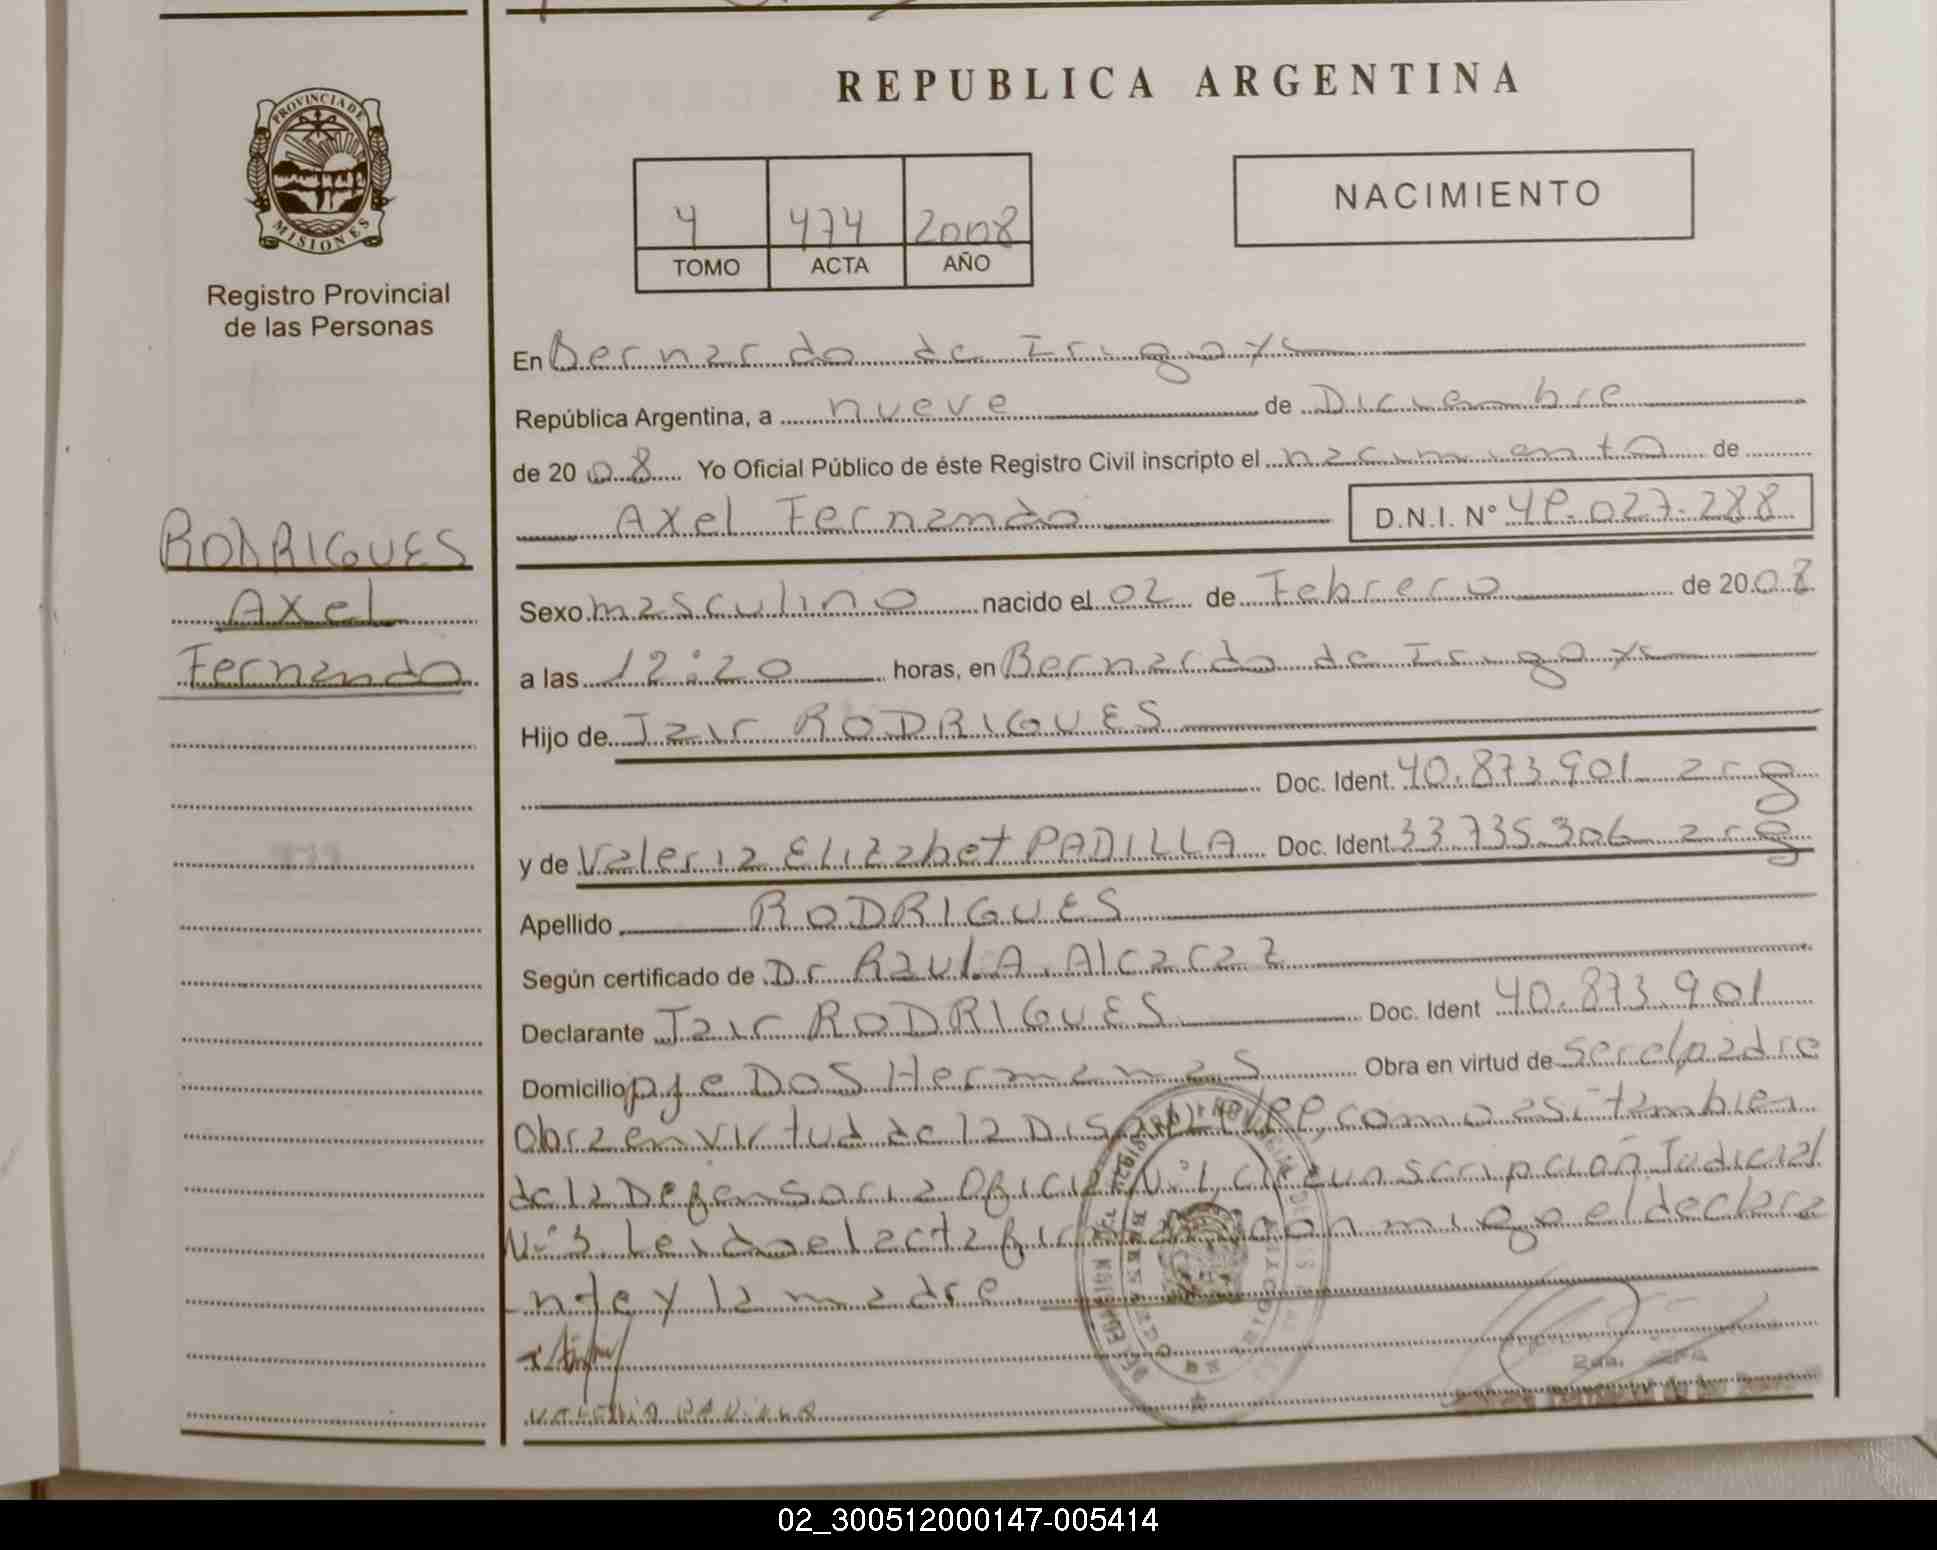 REPUBLICA ARGENTINA
PROVINCIA DE
MISIONES
Registro Provincial
de las Personas
NACIMIENTO
4 474 2008
TOMO ACTA AÑO
En Bernardo de Irigoye
República Argentina, a nueve de Diciembre
de 20 08 Yo Oficial Público de éste Registro Civil inscripto el nacimiento de
Axel Fernando D.N.I. N° 49.027.288
RODRIGUES
Axel
Fernando
Sexo masculino nacido el 02 de Febrero de 20 08
a las 12:20 horas, en Bernardo de Irigoye
Hijo de Jair RODRIGUES
Doc. Ident. 40.873.901 arg
y de Valeria Elizabet PADILLA Doc. Ident 33.735.306 arg
Apellido RODRIGUES
Según certificado de Dr Raul A. Alcaraz
Declarante Jair RODRIGUES Doc. Ident 40.873.901
Domicilio pje Dos Hermanas Obra en virtud de ser el padre
Obra en virtud de la como asi tambien
de la Defensoria Oficial N°1, circunscripcion Judicial
N°3 Leido el acta conmigo el declara
nte y la madre
VALERIA PADILLA
02_300512000147-005414